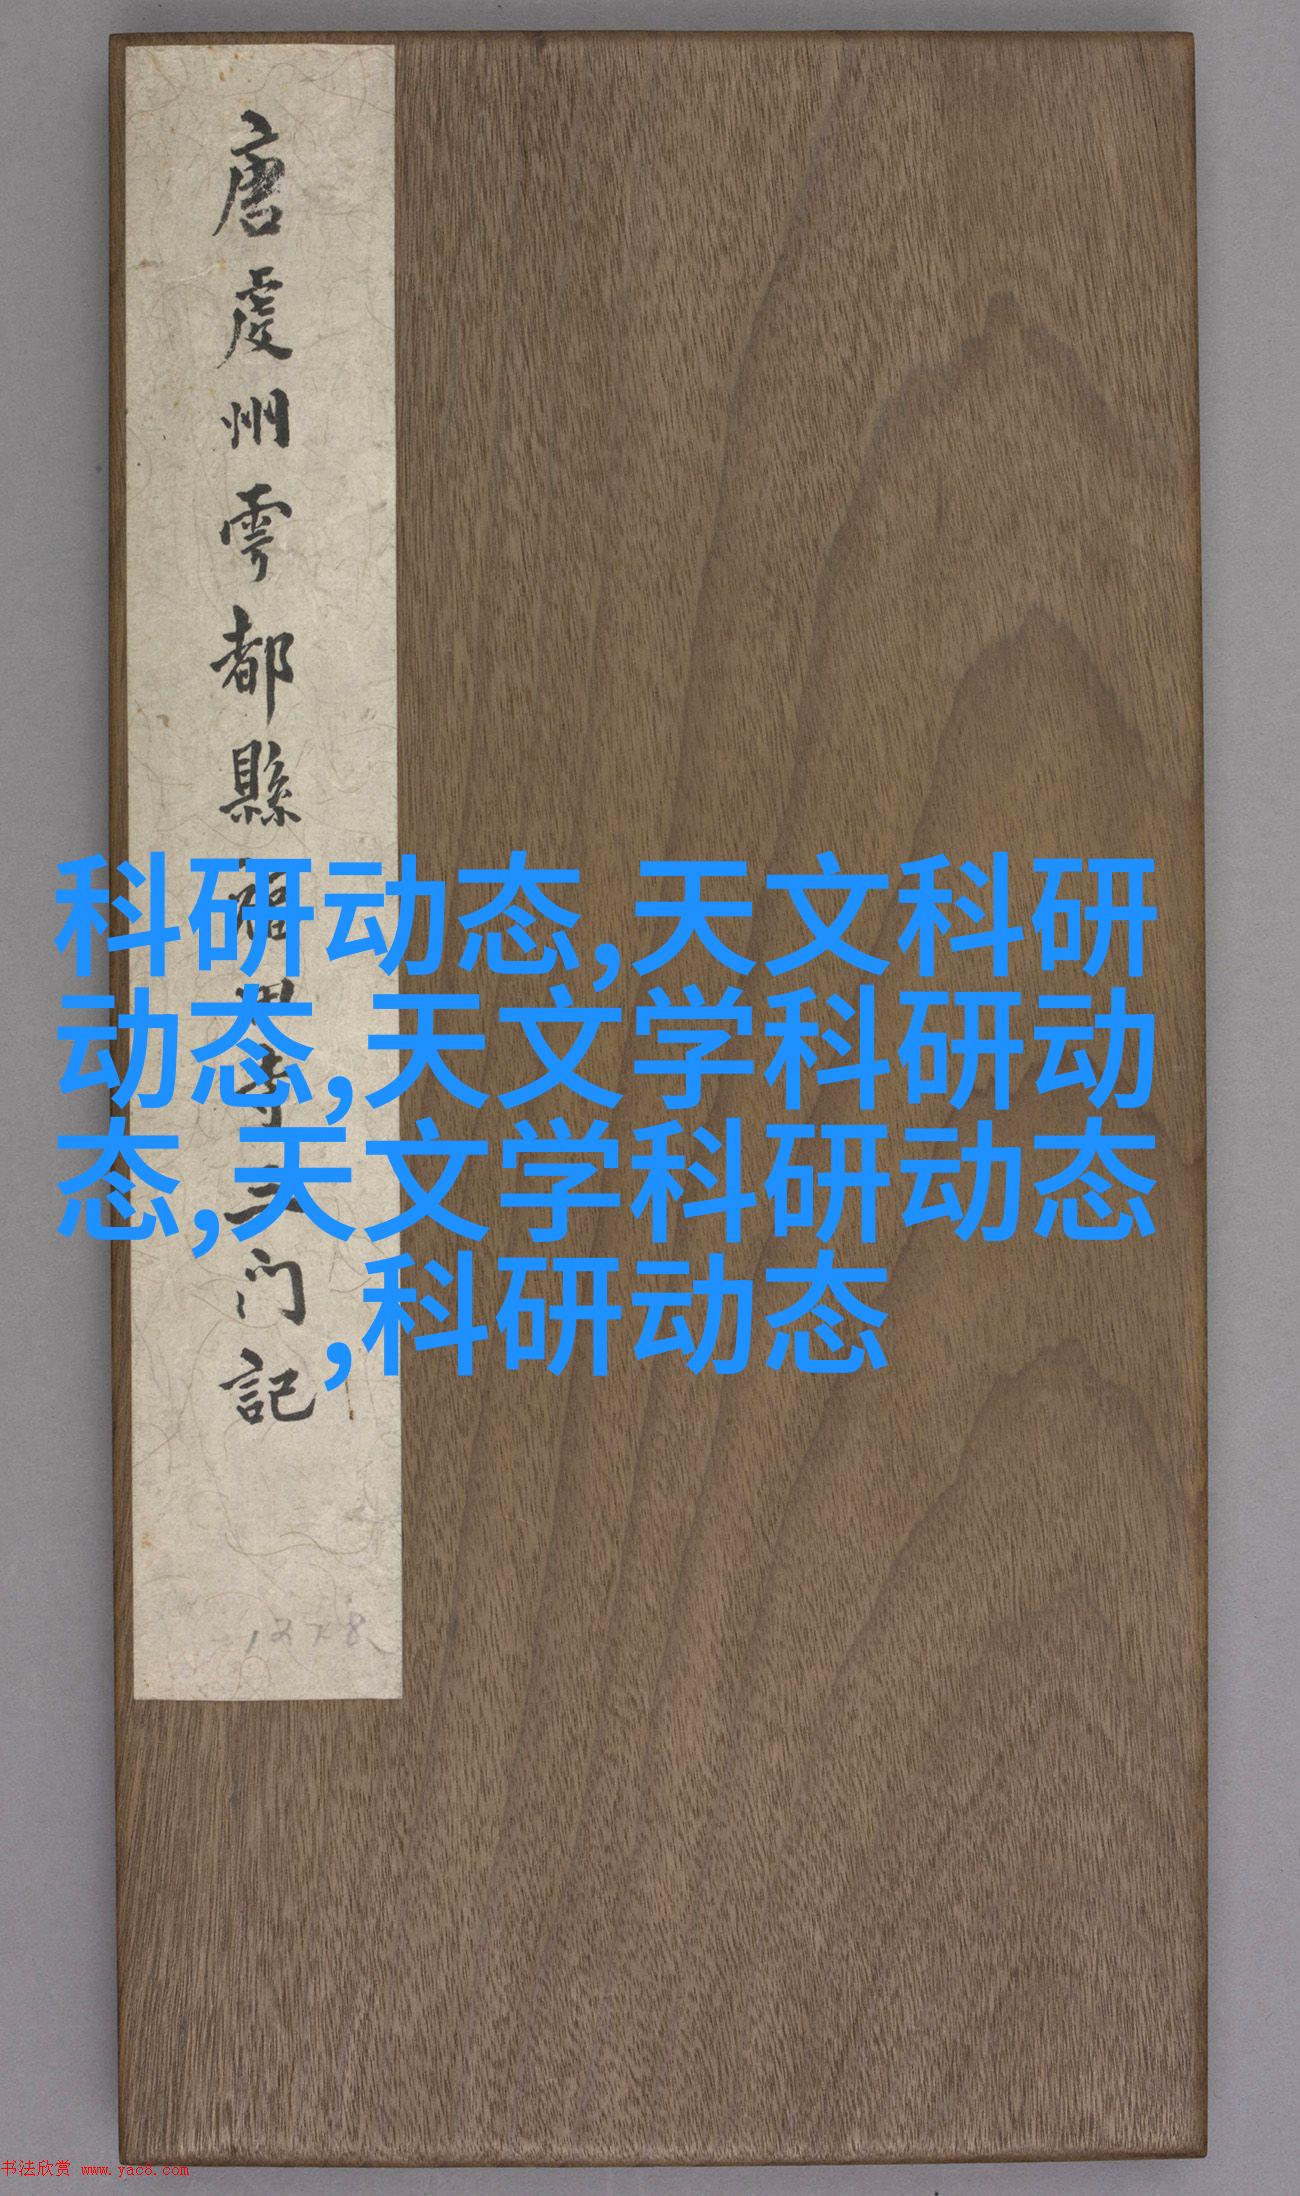 唐虔州雩都縣福田寺三門記
科研动态,天文科研
动态,天文学科研动
态,天文学科研动态
,科研动态
书法欣赏 www.yac8.com